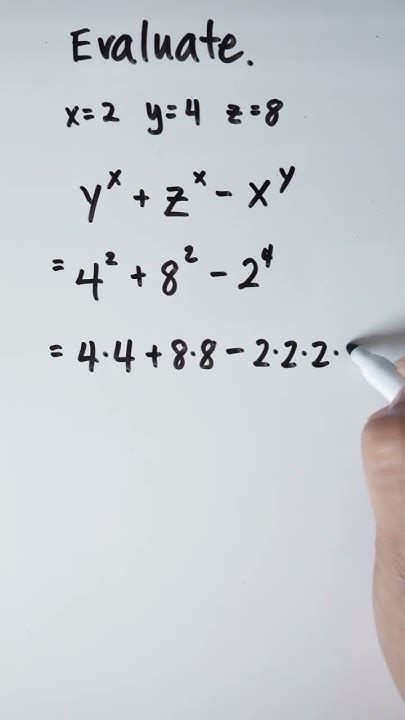 Evaluate.
x=2 y=4 z=8
y^x + z^x - x^y
= 4² + 8² - 2⁴
= 4·4 + 8·8 - 2·2·2·